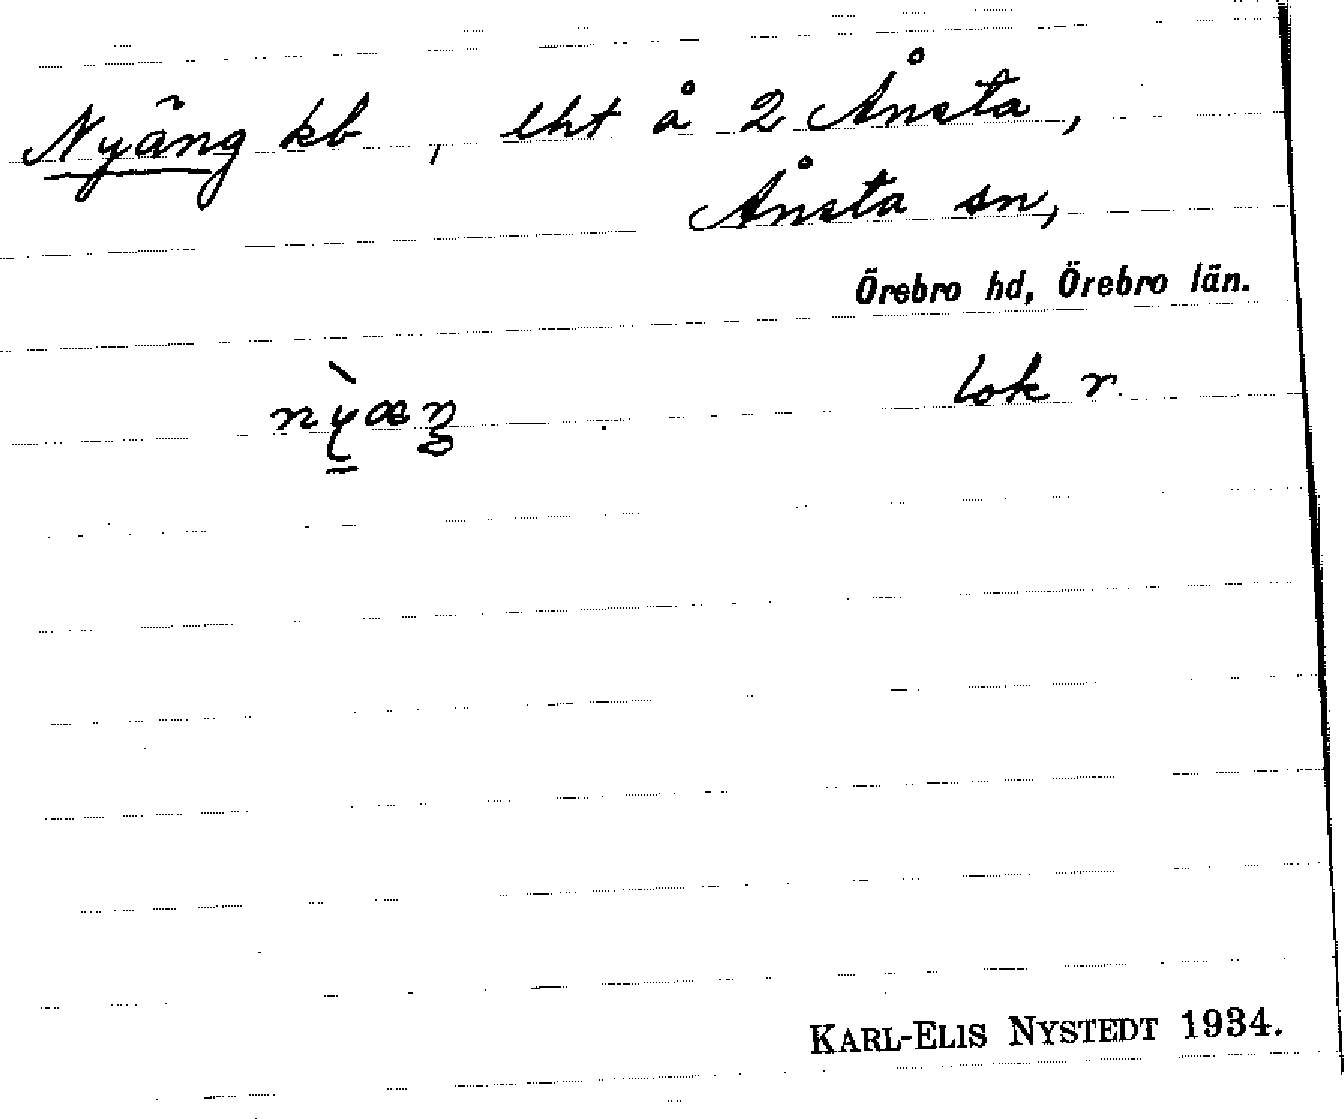 Nyäng kb, lht å 2 Ånsta,
Ånsta sn,
Örebro hd, Örebro län.
lok r.
KARL-ELIS NYSTEDT 1934.